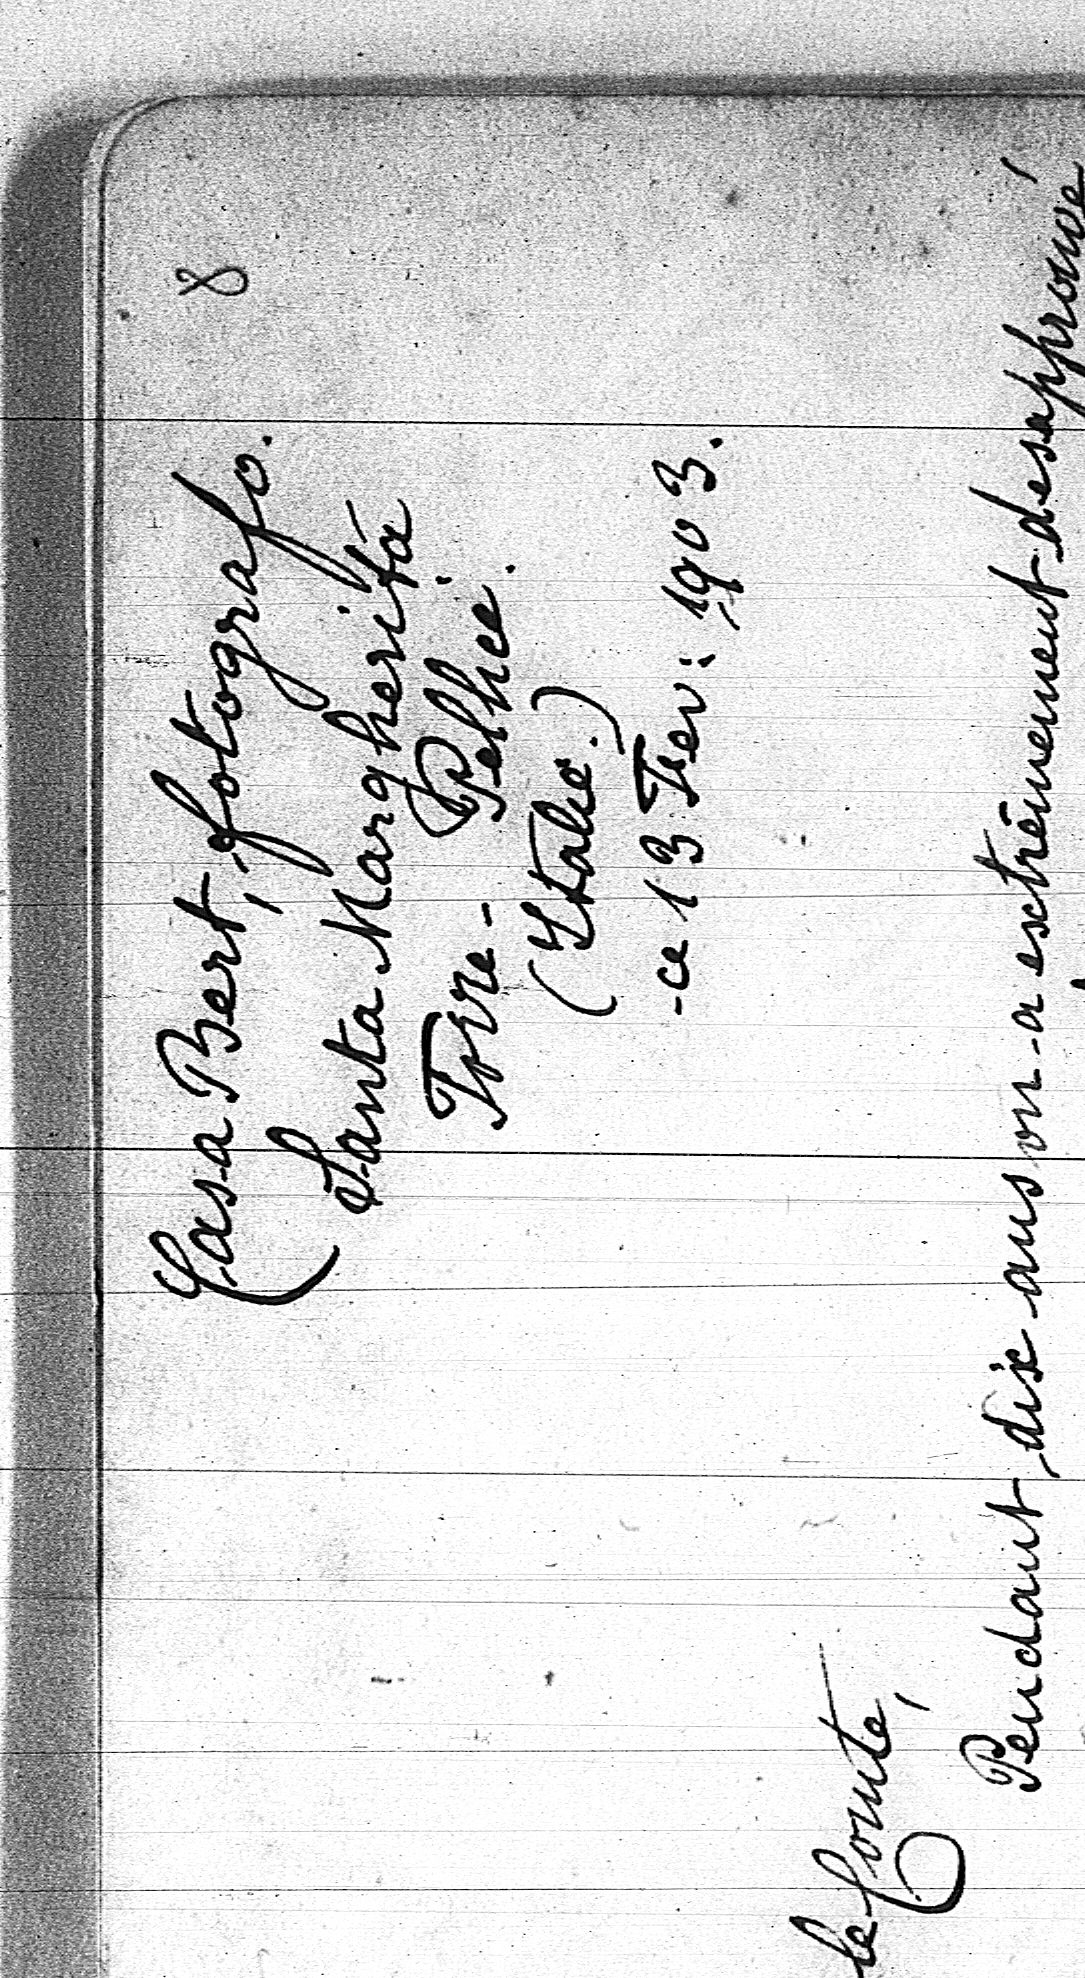 8
Casa Bert, fotografo.
Santa Margherità
Torre-Pellice.
(Italie.)
-ce 13 Fev: 1903.
le Comte,
Pendant dix ans on a extrêmement desapprouvé